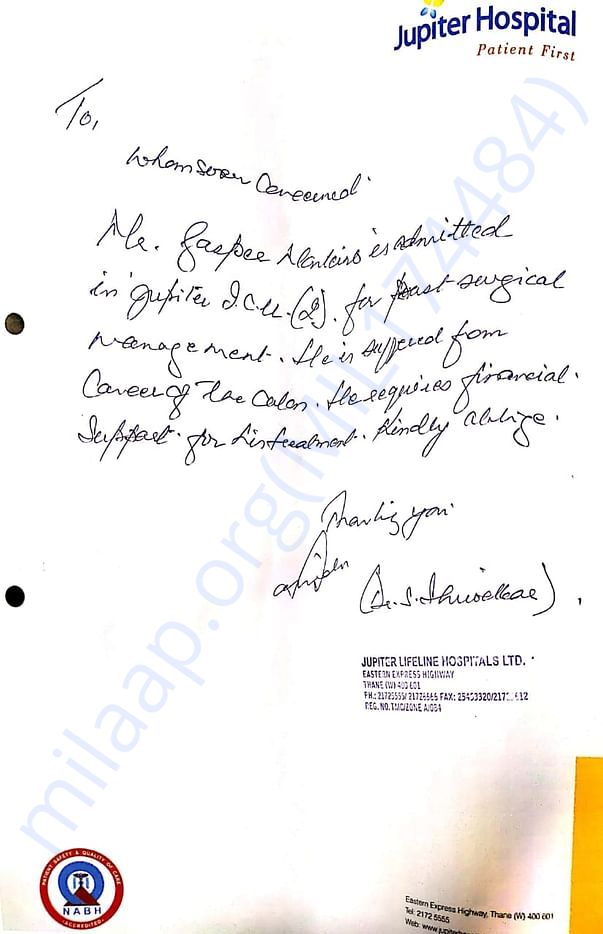 Jupiter Hospital
Patient First
To,
Whomsoever Concerned
Mr. is admitted
in Jupiter I.C.U. (2). for Post surgical
management. He is suffered from
Cancer of The Colon. He requires financial.
Support for his treatment. Kindly oblige.
Thanking you
(Dr. S. )
JUPITER LIFELINE HOSPITALS LTD.
EASTERN EXPRESS HIGHWAY
THANE (W) 400 601
PH.: 21725555/ FAX:
REG. NO. TMC/ZONE
milaap.org(MIL174484)
PATIENT SAFETY & QUALITY OF CARE
NABH
ACCREDITED
Eastern Express Highway, Thane (W) 400 601
Tel: 2172 5555
Web: www.jupiterho